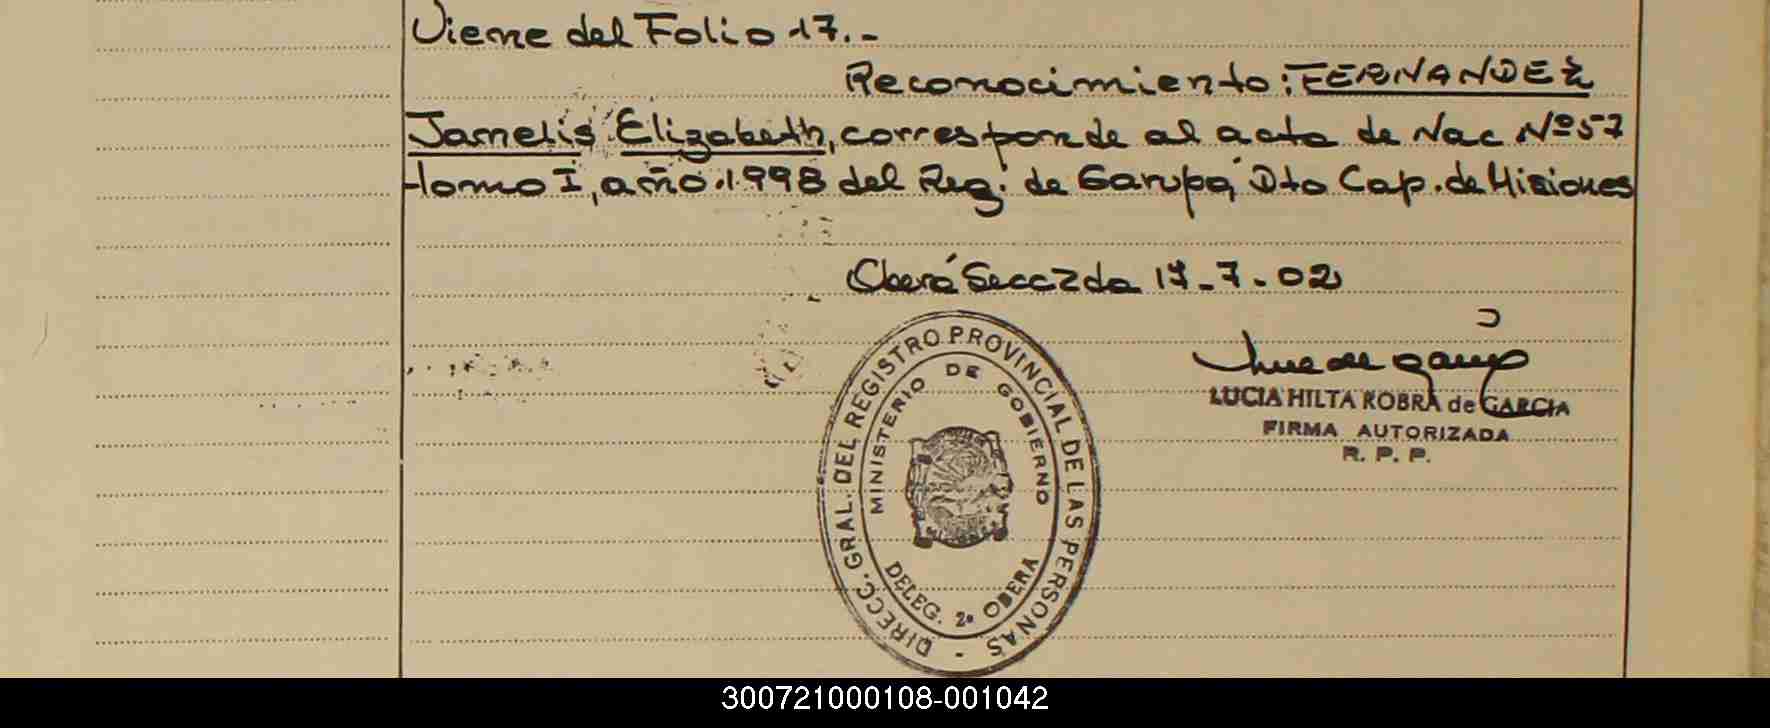 Viene del Folio 17.-
Reconocimiento: FERNANDEZ
Jamelis Elizabeth, corresponde al acta de Nac Nº 57
tomo I, año 1998 del Reg. de Garupá, Dto Cap. de Misiones
Oberá Secc 2da 17-7-02
LUCIA HILTA ROBRA de GARCIA
FIRMA AUTORIZADA
R. P. P.
DIRECC. GRAL. DEL REGISTRO PROVINCIAL DE LAS PERSONAS -
MINISTERIO DE GOBIERNO
DELEG. 2º OBERA
300721000108-001042